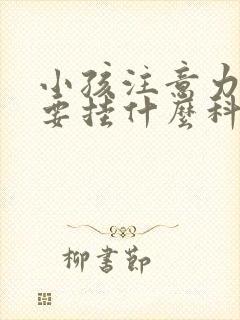 小孩注意力
要挂什麼科
柳書節